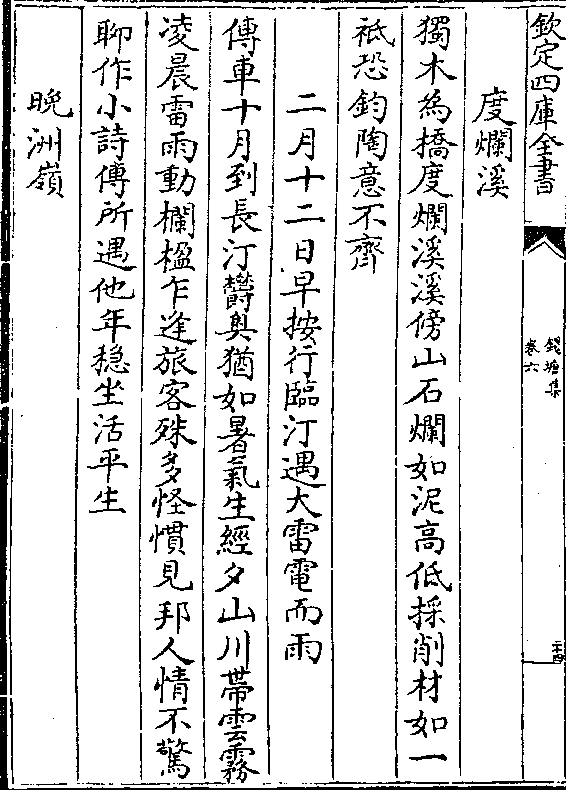 欽定四庫全書
錢塘集
卷六
二十四
度爛溪
獨木為橋度爛溪溪傍山石爛如泥高低採削材如一
祗恐鈞陶意不齊
二月十二日早按行臨汀遇大雷電而雨
傳車十月到長汀欝奧猶如暑氣生經夕山川帶雲霧
凌晨雷雨動欄楹乍逢旅客殊多怪慣見邦人情不驚
聊作小詩傳所遇他年穏坐活平生
晩洲嶺